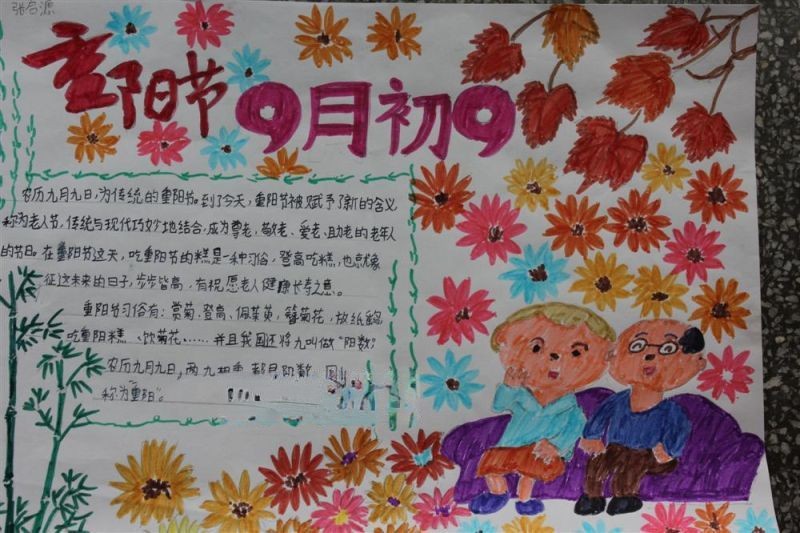 张名源
重阳节
9月初9
农历九月九日,为传统的重阳节。到了今天,重阳节被赋予了新的含义
称为老人节,传统与现代巧妙地结合,成为尊老、敬老、爱老、助老的老年人
的节日。在重阳节这天,吃重阳节的糕是一种习俗,登高吃糕,也就像
征这未来的日子,步步皆高,有祝愿老人健康长寿之意。
重阳节习俗有:赏菊、登高、佩茱萸,簪菊花,放纸鹞
吃重阳糕、饮菊花……并且我国还将九叫做“阳数”
农历九月九日,两九相重都是阳数
称为“重阳”。